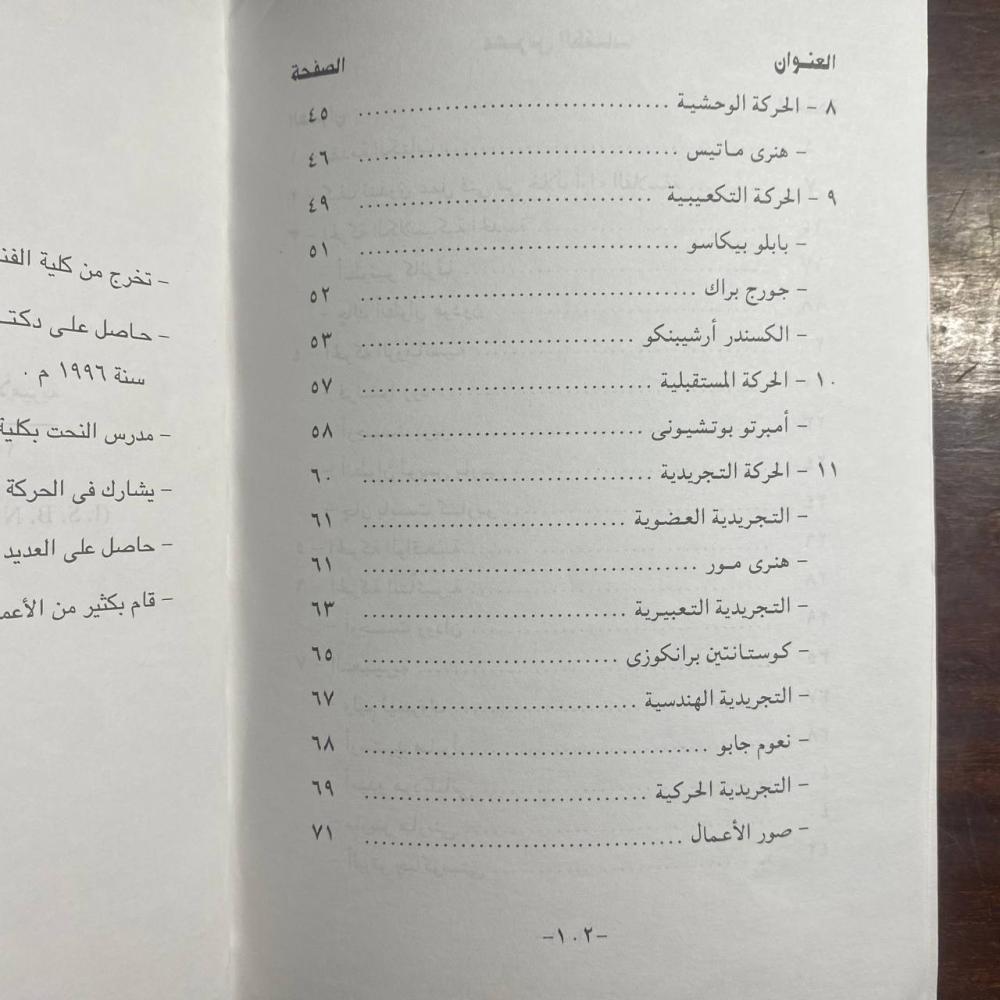 العنوان الصفحة
٨ - الحركة الوحشية ........ ٤٥
- هنرى ماتيس ........ ٤٦
٩ - الحركة التكعيبية ........ ٤٩
- بابلو بيكاسو ........ ٥١
- جورج براك ........ ٥٢
- الكسندر أرشيبنكو ........ ٥٣
١٠ - الحركة المستقبلية ........ ٥٧
- أمبرتو بوتشيونى ........ ٥٨
١١ - الحركة التجريدية ........ ٦٠
- التجريدية العضوية ........ ٦١
- هنرى مور ........ ٦١
- التجريدية التعبيرية ........ ٦٣
- كوستانتين برانكوزى ........ ٦٥
- التجريدية الهندسية ........ ٦٧
- نعوم جابو ........ ٦٨
- التجريدية الحركية ........ ٦٩
- صور الأعمال ........ ٧١
-١٠٢-
- تخرج من كلية
- حاصل على
سنة ١٩٩٦ م .
- مدرس النحت بكلية
- يشارك فى الحركة
- حاصل على العديد
- قام بكثير من